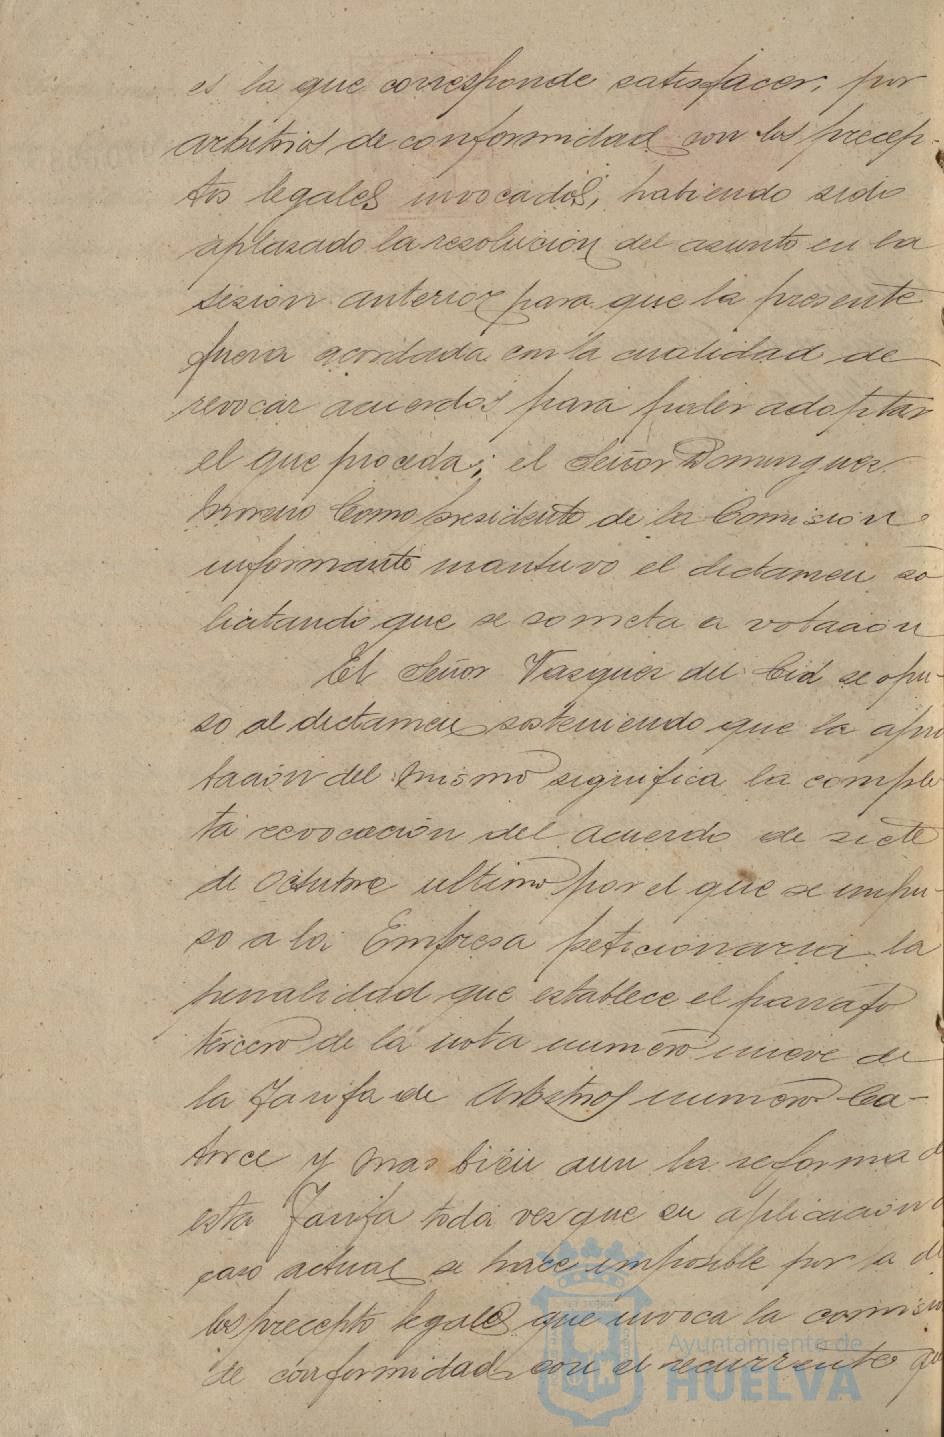 es la que corresponde satisfacer, por
arbitrios de conformidad con los precep-
tos legales invocados, habiendo sido
aplazado la resolucion del asunto en la
sesion anterior para que la presente
fuera acordada con la cualidad de
revocar acuerdos para poder adoptar
el que proceda; el Señor Dominguez
Moreno Como presidente de la Comision
informante mantuvo el dictamen so
licitando que se someta a votacion
El Señor Vazquez del Cid se opu-
so al dictamen sosteniendo que la apro
tacion del mismo significa la comple
ta revocacion del acuerdo de siete
de Octubre ultimo por el que se impu-
so a la Empresa peticionaria la
penalidad que establece el parrafo
tercero de la nota numero nueve de
la Tarifa de Arbitrios numero Ca-
torce y mas bien aun la reforma d
esta Tarifa toda vez que su aplicacion
caso actual se hace imposible por la d
los precepto legales que invoca la comisio
de conformidad con el recurrente
Ayuntamiento de
HUELVA